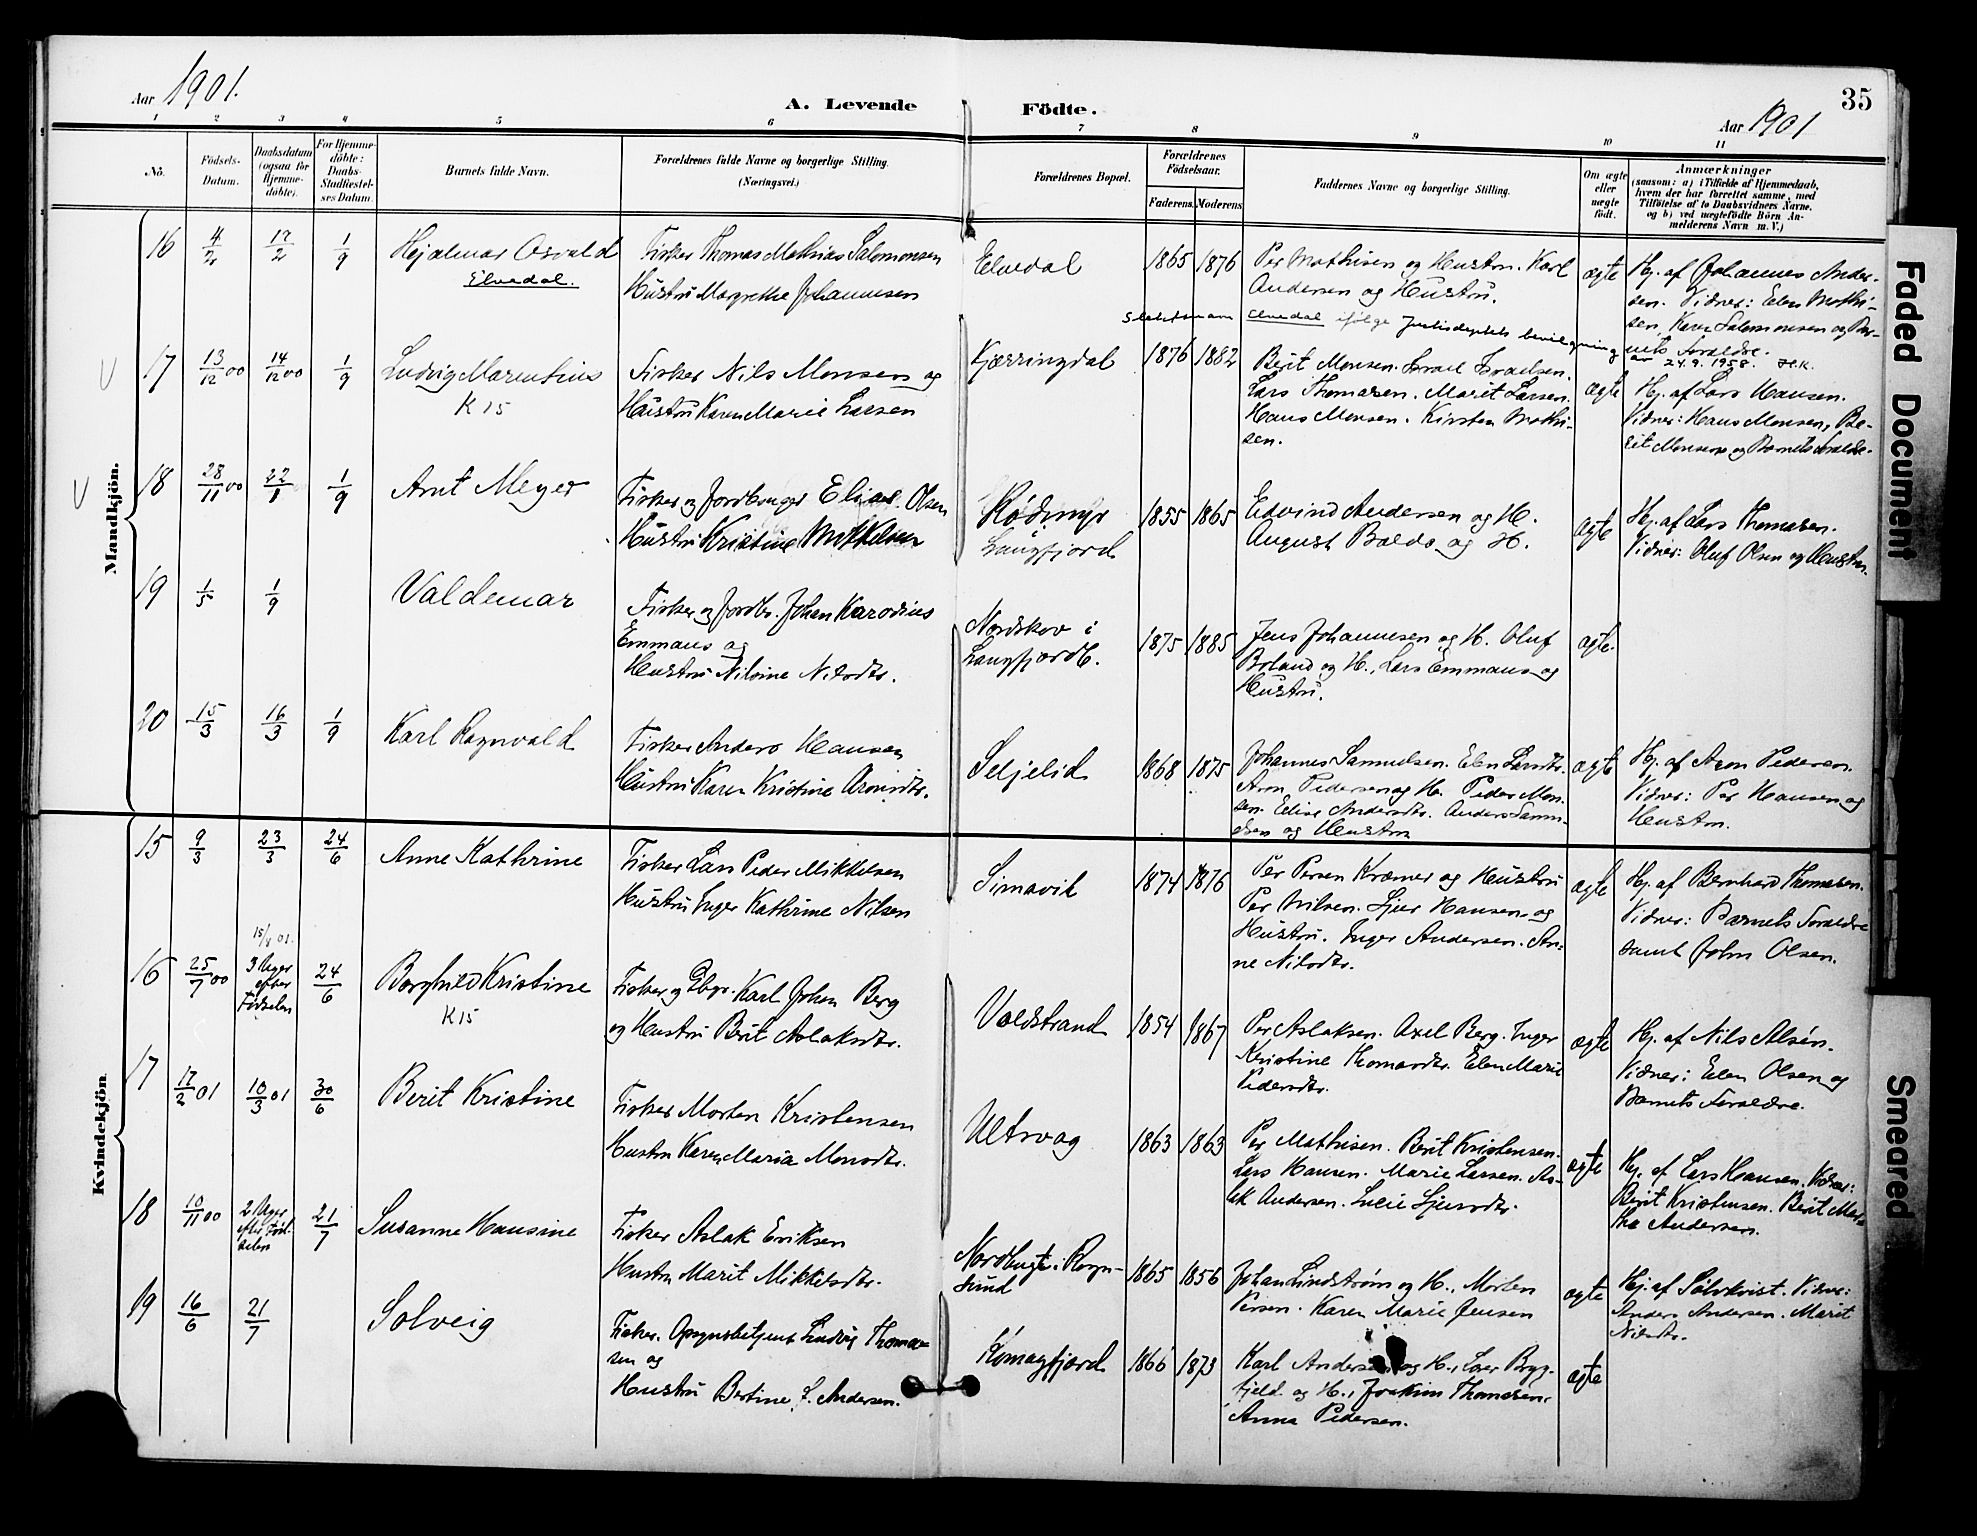 Aar 1901.
A. Levende Födte.
Aar 1901
35
1 2 3 4 5 6 7 8 9 10 11
Nö.
Födsels-Datum.
Daabsdatum (ogsaa for Hjemmedöbte).
For Hjemmedöbte: Daabs-Stadfæstelses Datum.
Barnets fulde Navn.
Forældrenes fulde Navne og borgerlige Stilling.
(Næringsvei.)
Forældrenes Bopæl.
Forældrenes Födselsaar.
Faderens. Moderens.
Faddernes Navne og borgerlige Stilling.
Om ægte eller uægte födt.
Anmærkninger
(saasom: a) i Tilfælde af Hjemmedaab,
hvem der har forrettet samme, med
Tilföielse af to Daabsvidners Navne.
og b) ved uægtefödte Börn Anmelderens Navn m. V.)
Mandkjön.
16 4/2 17/2 1/9 Hejalmar Osvald
Elvedal.
Fisker Thomas Mathias Salomonsen
Hustru Margrethe Johannesen
Elvedal 1865 1876
Per Mathisen og Hustru. Karl
Andersen og Hustru.
ægte
Hj. af Johannes Ander-
sen. Vidner: Elen Mathi-
sen, Karen Salomonsen og Bar-
nets Forældre.
Slektsnavn Elvedal ifølge Justisdeptets bevilgning
av 24.9.1958. H.K.
17 13/12 00 14/12 00 1/9 Ludvig Marentius
K 15
Fisker Nils Monsen og
Hustru Karen Marie Larsen
Kjærringdal 1876 1882
Berit Monsen. Israel Israelsen.
Lars Thomasen. Marit Larsen.
Hans Monsen. Kirsten Mathi-
sen.
ægte
Hj. af Lars Hansen.
Vidner: Hans Monsen, Be-
rit Monsen og Barnets Forældre.
18 28/11 00 22/1 1/9 Arnt Meyer
Fisker og Jordbruger Elias Olsen
Hustru Kristine Mikkelsen
Rødmyr
Langfjord
1855 1865
Edvind Andersen og H.
August Boldo og H.
ægte
Hj. af Lars Thomasen.
Vidner: Oluf Olsen og Hustru.
19 1/5 1/9 Valdemar
Fisker og Jordbr. Johan Karodius
Emmaus og
Hustru Nilsine Nilsdtr.
Nordskov i
Langfjordb.
1875 1885
Jens Johannesen og H. Oluf
Boland og H., Lars Emmaus og
Hustru.
ægte.
20 15/3 16/3 1/9 Karl Ragnvald
Fisker Anders Hansen
Hustru Karen Kristine Aronsdtr.
Seljelid 1868 1875
Johannes Samuelsen. Elen Larsdtr.
Aron Pedersen og H. Peder Mon-
sen. Elise Andersdtr. Anders Samu-
elsen og Hustru
ægte
Hj. af Aron Pedersen.
Vidner: Per Hansen og
Hustru.
Kvindekjön
15 9/3 23/3 24/6 Anne Kathrine
Fisker Lars Peder Mikkelsen
Hustru Inger Kathrine Nilsen
Simavik 1874 1876
Per Persen Kræmer og Hustru
Per Nilsen. Sjur Hansen og
Hustru. Inger Andersen. An-
ne Nilsdtr.
ægte
Hj. af Bernhard Thomasen.
Vidner: Barnets Forældre
samt John Olsen.
16 25/7 00 15/8 01.
3 Uger
efter
Fødselen
24/6 Borghild Kristine
K15
Fisker og Gbgr. Karl Johan Berg
og Hustru Berit Aslaksdtr.
Voldstrand 1854 1867
Per Aslaksen. Axel Berg. Inger
Kristine Thomasdtr. Elen Marie
Pedersdtr.
ægte
Hj. af Nils Alsén.
Vidner: Elen Olsen og
Barnets Forældre.
17 17/2 01 10/3 01 30/6 Berit Kristine
Fisker Morten Kristensen
Hustru Karen Maria Monsdtr.
Ultsvag 1863 1863
Per Mathisen. Berit Kristensen.
Lars Hansen. Marie Larsen. As-
lak Andersen. Lucie Sjursdtr.
ægte
Hj. af Lars Hansen. Vidner:
Berit Kristensen. Berit Mar-
tha Andersen.
18 10/11 00 2 Uger
efter Fød-
selen
21/7 Susanne Hansine
Fisker Aslak Eriksen
Hustru Marit Mikkelsdtr.
Nordbugt i Rogn-
sund
1865 1856
Johan Lindstrøm og H. Morten
Persen. Karen Marie Jensen
ægte
Hj. af Sølvkvist. Vidner:
Anders Andersen. Marit
Nilsdtr.
19 16/6 21/7 Solveig
Fisker. Opsynsbetjent Ludvig Thoma-
sen og
Hustru Bertine L. Andersen.
Komagfjord 1866 1873
Karl Andersen og H., Lars Bryg-
fjeld og H., Joakim Thomasen.
Anna Pedersen.
ægte
Faded Document
Smeared